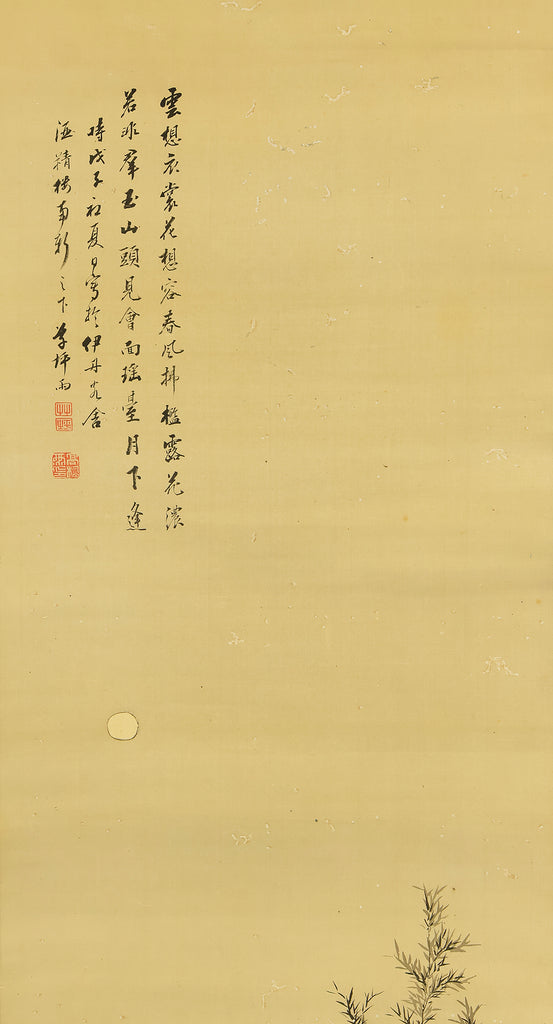 雲想衣裳花想容春風拂檻露花濃
若非羣玉山頭見會面瑶臺月下逢
時戊子初夏日寫於伊丹客舍
精樓南之下草坪